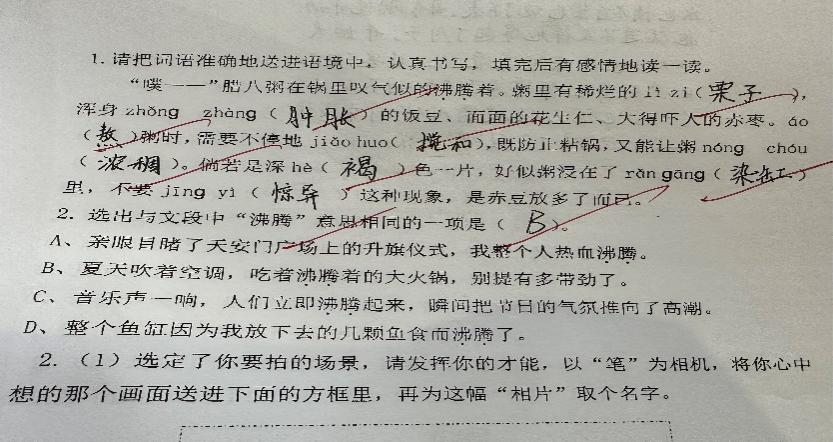 1. 请把词语准确地送进语境中，认真书写，填完后有感情地读一读。
“噗——”腊八粥在锅里叹气似的沸腾着。粥里有稀烂的 lì zi（栗子），
浑身 zhǒng zhàng（肿胀）的饭豆、面面的花生仁、大得吓人的赤枣。áo
（熬）粥时，需要不停地 jiǎo huo（搅和），既防止粘锅，又能让粥 nóng chóu
（浓稠）。倘若是深 hè（褐）色一片，好似粥浸在了 rǎn gāng（染缸）
里，不要 jīng yì（惊异）这种现象，是赤豆放多了而已。
2. 选出与文段中“沸腾”意思相同的一项是（B）。
A、亲眼目睹了天安门广场上的升旗仪式，我整个人热血沸腾。
B、夏天吹着空调，吃着沸腾着的大火锅，别提有多带劲了。
C、音乐声一响，人们立即沸腾起来，瞬间把节日的气氛推向了高潮。
D、整个鱼缸因为我放下去的几颗鱼食而沸腾了。
2.（1）选定了你要拍的场景，请发挥你的才能，以“笔”为相机，将你心中
想的那个画面送进下面的方框里，再为这幅“相片”取个名字。